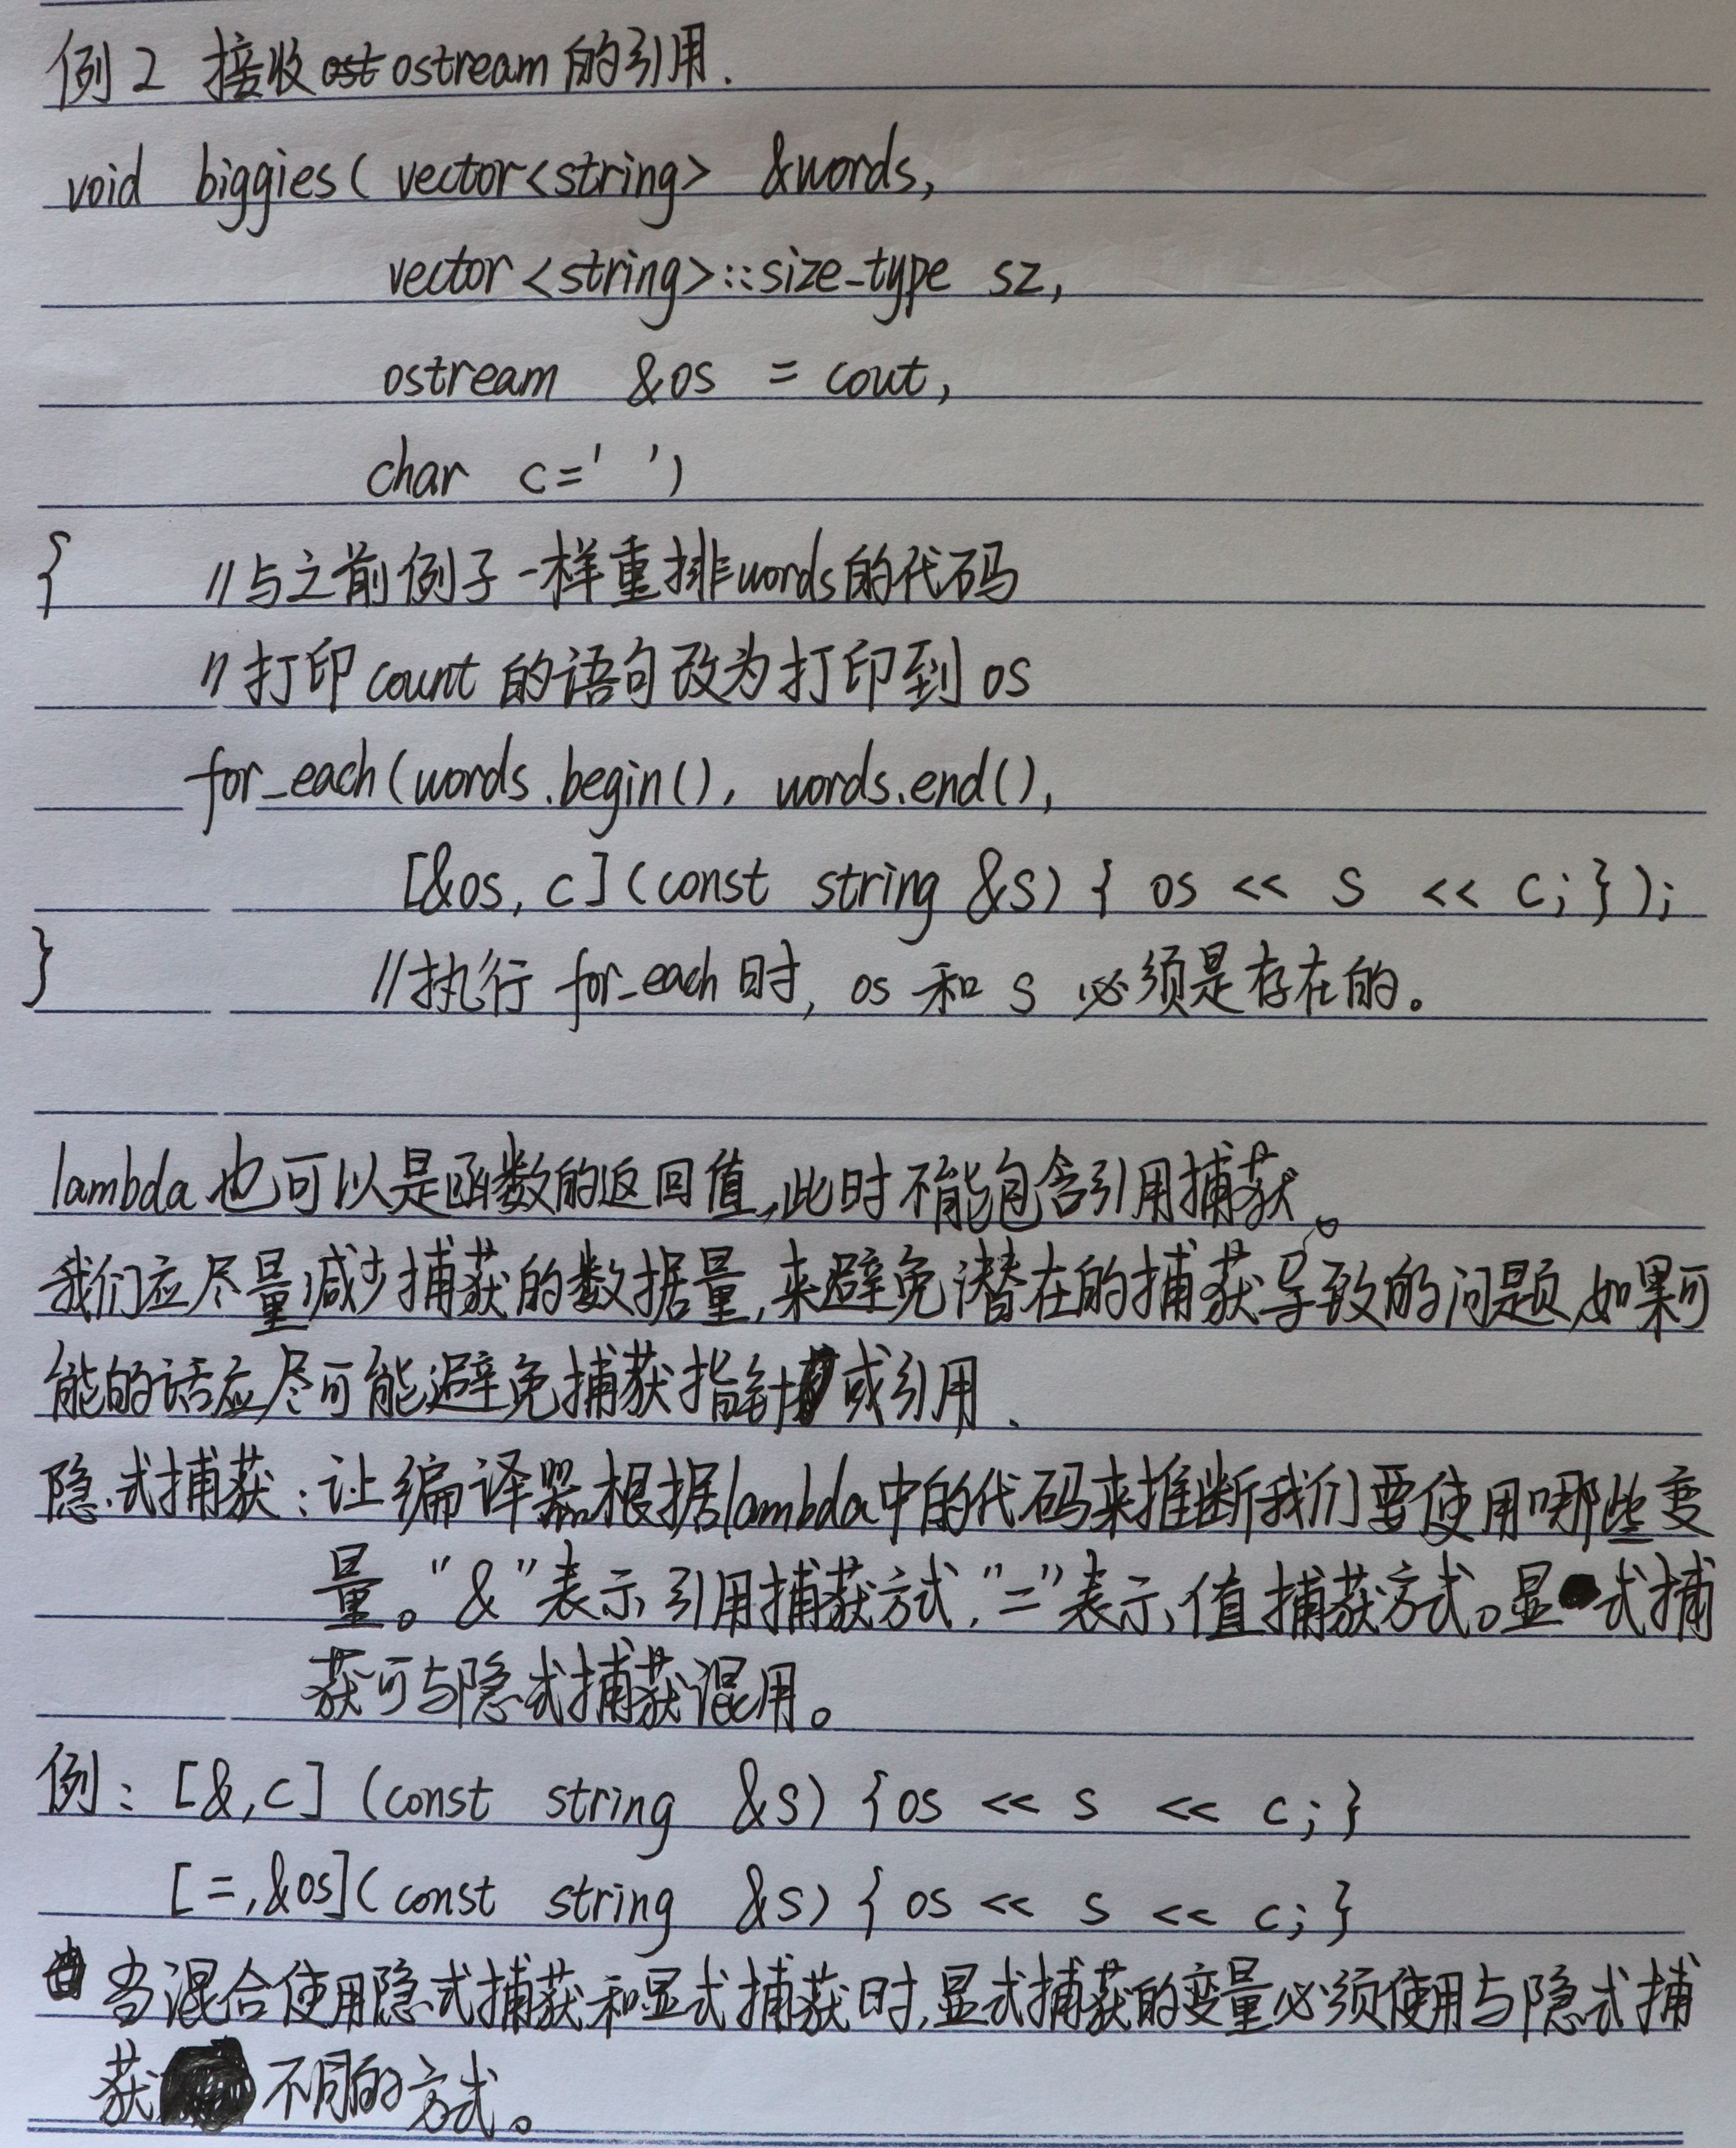 例2 接收ostream的引用.
void biggies( vector<string> &words,
vector<string>::size_type sz,
ostream &os = cout,
char c=' ')
{ //与之前例子一样重排words的代码
//打印count的语句改为打印到os
for_each(words.begin(), words.end(),
[&os, c](const string &s) { os << s << c; });
} //执行 for_each时, os 和 s 必须是存在的。
lambda也可以是函数的返回值,此时不能包含引用捕获。
我们应尽量减少捕获的数据量,来避免潜在的捕获导致的问题,如果可
能的话应尽可能避免捕获指针或引用.
隐式捕获:让编译器根据lambda中的代码来推断我们要使用哪些变
量。"&"表示引用捕获方式,"="表示值捕获方式。显式捕
获可与隐式捕获混用。
例: [&,c] (const string &s) {os << s << c; }
[=,&os](const string &s) { os << s << c; }
当混合使用隐式捕获和显式捕获时,显式捕获的变量必须使用与隐式捕
获不同的方式。